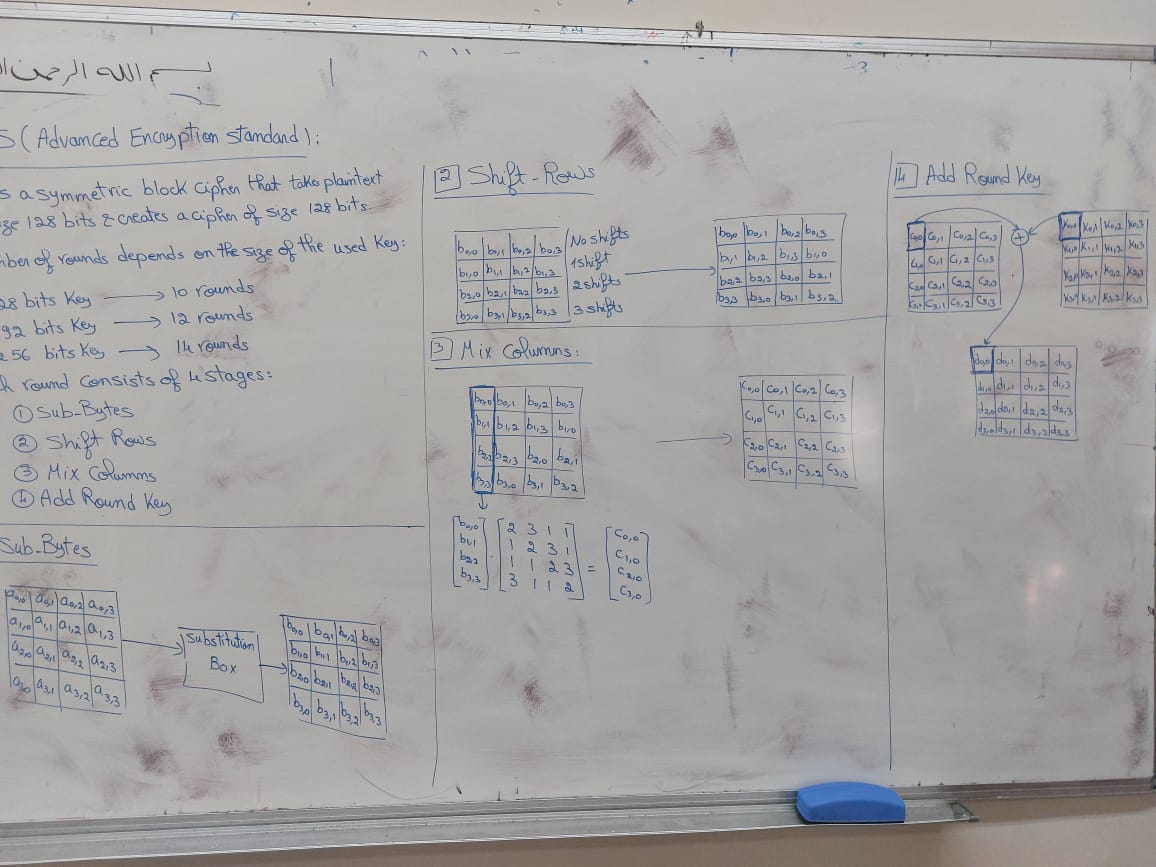 بسم الله الرحمن ال
S (Advanced Encryption standard):
s a symmetric block cipher that takes plaintext
ze 128 bits & creates a cipher of size 128 bits.
ber of rounds depends on the size of the used Key:
28 bits Key → 10 rounds
92 bits Key → 12 rounds
256 bits Key → 14 rounds
h round consists of 4 stages:
① Sub-Bytes
② Shift Rows
③ Mix Columns
④ Add Round Key
Sub-Bytes
a0,0 a0,1 a0,2 a0,3
a1,0 a1,1 a1,2 a1,3
a2,0 a2,1 a2,2 a2,3
a3,0 a3,1 a3,2 a3,3
Substitution
Box
b0,0 b0,1 b0,2 b0,3
b1,0 b1,1 b1,2 b1,3
b2,0 b2,1 b2,2 b2,3
b3,0 b3,1 b3,2 b3,3
2 Shift-Rows
b0,0 b0,1 b0,2 b0,3 No shifts
b1,0 b1,1 b1,2 b1,3 1 shift
b2,0 b2,1 b2,2 b2,3 2 shifts
b3,0 b3,1 b3,2 b3,3 3 shifts
b0,0 b0,1 b0,2 b0,3
b1,1 b1,2 b1,3 b1,0
b2,2 b2,3 b2,0 b2,1
b3,3 b3,0 b3,1 b3,2
3 Mix Columns:
b0,0 b0,1 b0,2 b0,3
b1,1 b1,2 b1,3 b1,0
b2,2 b2,3 b2,0 b2,1
b3,3 b3,0 b3,1 b3,2
c0,0 c0,1 c0,2 c0,3
c1,0 c1,1 c1,2 c1,3
c2,0 c2,1 c2,2 c2,3
c3,0 c3,1 c3,2 c3,3
b0,0 2 3 1 1 c0,0
b1,1 1 2 3 1 c1,0
b2,2 · 1 1 2 3 = c2,0
b3,3 3 1 1 2 c3,0
4 Add Round Key
c0,0 c0,1 c0,2 c0,3
c1,0 c1,1 c1,2 c1,3
c2,0 c2,1 c2,2 c2,3
c3,0 c3,1 c3,2 c3,3
+
K0,0 K0,1 K0,2 K0,3
K1,0 K1,1 K1,2 K1,3
K2,0 K2,1 K2,2 K2,3
K3,0 K3,1 K3,2 K3,3
d0,0 d0,1 d0,2 d0,3
d1,0 d1,1 d1,2 d1,3
d2,0 d2,1 d2,2 d2,3
d3,0 d3,1 d3,2 d3,3